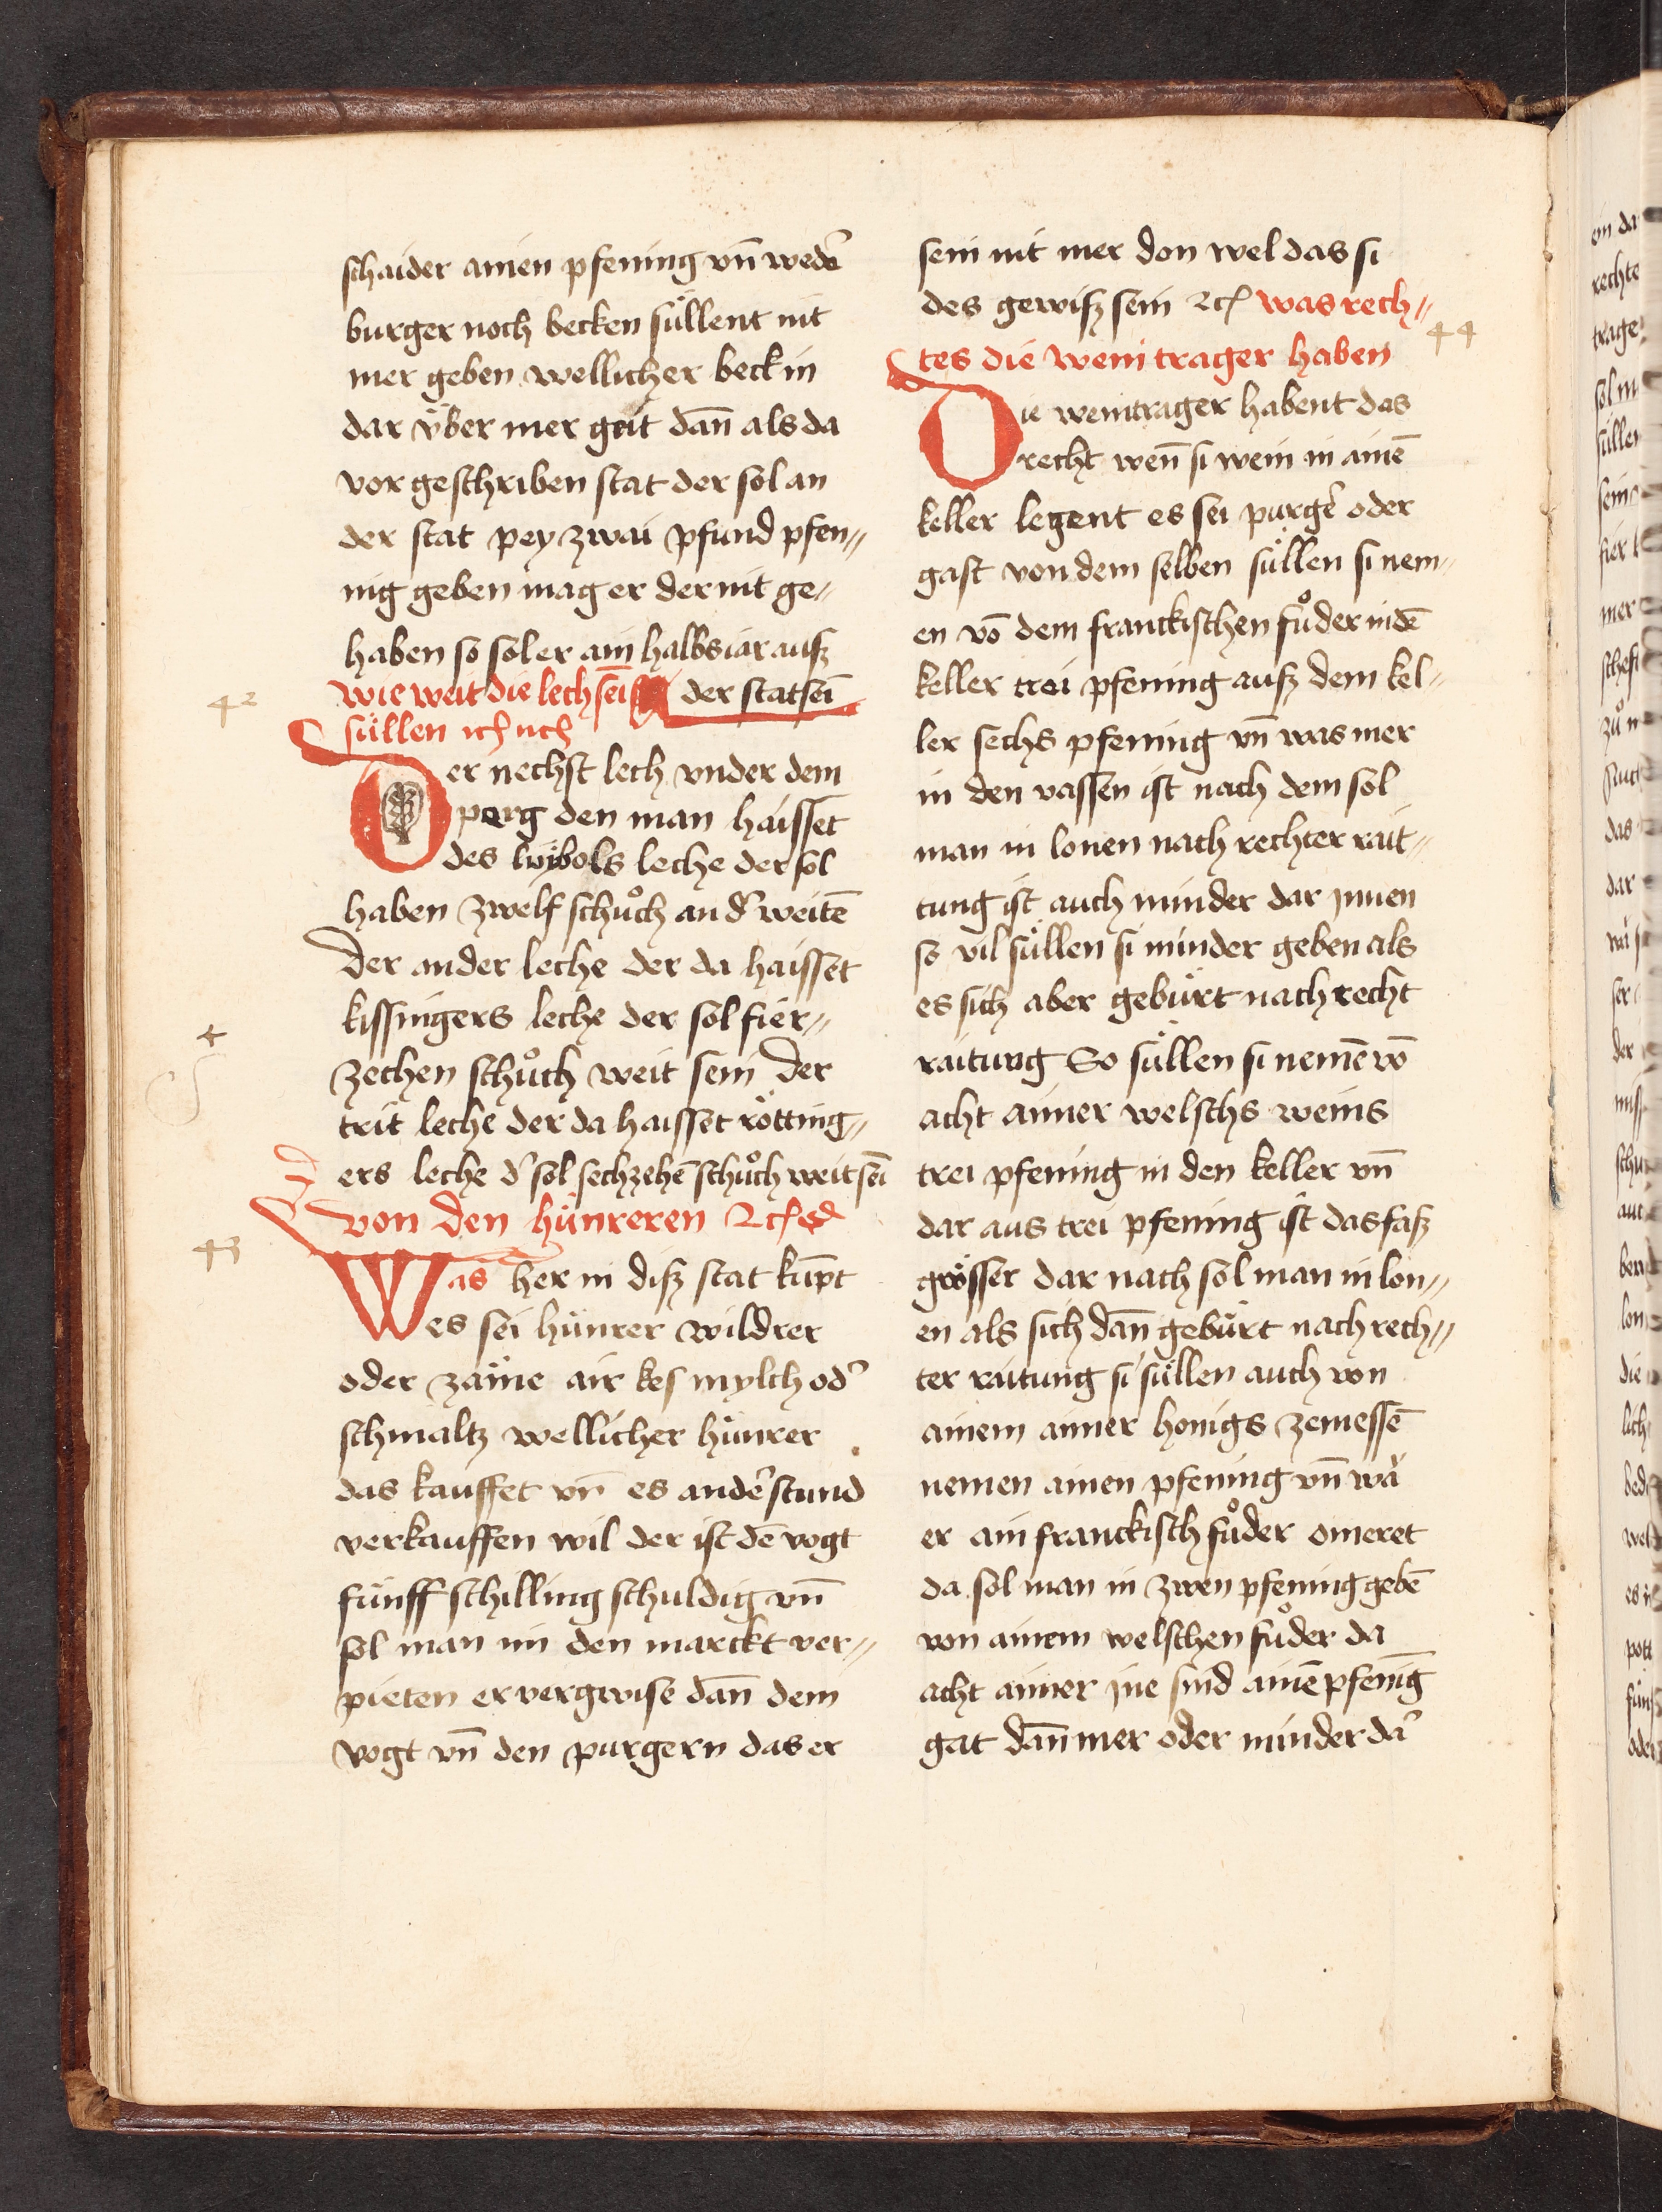 schaider ainen pfening vn̄ weder̄
burger noch becken süllent nit
mer geben wellicher beck in
dar v̈ber mer geit dan̄ als da
vor geschriben stat der sol an
der stat pey zwai pfund pfen„
nig geben mag er der nit ge„
haben so sol er ain halbs iar ausz
wie weit die lech sein̄ der stat sein̄
süllen ich uch
Der nechst lech vnder dem
perg den man haisset
des luybols leche der sol
haben zwelf schůch an d' weitē
der ander leche der da haisset
kissingers leche der sol fier„
zechen schůch weit sein der
trit leche der da haisset rötting„
ers leche d' sol sechzehē schůch weit sein̄
von den hünreren
Was her in disz stat kūpt
es sei hünrer wildrer
oder zäme air kes mylch od'
schmaltz wellicher hünrer
das kauffet vn̄ es ander̄ stund
verkauffen wil der ist dē vogt
fünff schilling schuldig vn̄
sol man im den marckt ver„
pieten er vergwise dan̄ dem
vogt vn̄ den purgern das er
42
43
sein nit mer don wel das si
des gewisz sein ꝛc was rech„
tes die wein trager haben
44
Die weintrager habent das
recht wen̄ si wein in ainē
keller legent es sei purger̄ oder
gast von dem selben süllen si nem„
en vō dem franckischen fůder in dē
keller trei pfening ausz dem kel„
ler sechs pfening vn̄ was mer
in den vassen ist nach dem sol
man in lonen nach rechter rait„
tung ist auch minder dar jnnen
so vil süllen si minder geben als
es sich aber gebürt nach recht
raitung So süllen si nemē vō
acht aimer welschs weins
trei pfening in den keller vn̄
dar aus trei pfening ist das fasz
grösser dar nach sol man in lon„
en als sich dan̄ gebürt nach rech„
ter raitung si süllen auch von
ainem aimer honigs zemessē
nemen ainen pfening vn̄ wä
er ain franckisch fůder omeret
da sol man in zwen pfening gebē
von ainem welschen fůder da
acht aimer jne sind ainē pfeniḡ
gat dan̄ mer oder minder da'